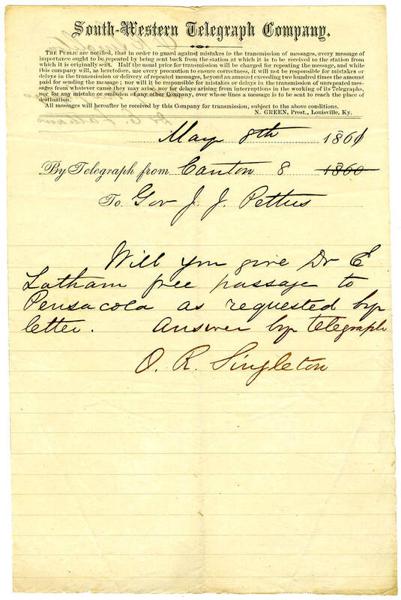 South-Western Telegraph Company.
THE PUBLIC are notified, that in order to guard against mistakes in the transmission of messages, every message of
importance ought to be repeated by being sent back from the station at which it is to be received to the station from
which it is originally sent. Half the usual price for transmission will be charged for repeating the message, and while
this company will, as heretofore, use every precaution to ensure correctness, it will not be responsible for mistakes or
delays in the transmission or delivery of repeated messages, beyond an amount exceeding two hundred times the amount
paid for sending the message; nor will it be responsible for mistakes or delays in the transmission of unrepeated mes-
sages from whatever cause they may arise, nor for delays arising from interruptions in the working of its Telegraphs,
nor for any mistake or omission of any other Company, over whose lines a message is to be sent to reach the place of
destination.
All messages will hereafter be received by this Company for transmission, subject to the above conditions.
N. GREEN, Prest., Louisville, Ky.
May 8th 1861
By Telegraph from Canton 8 1860
To Gov J. J. Pettus
Will you give Dr E
Latham free passage to
Pensacola as requested by
letter. Answer by telegraph
O. R. Singleton